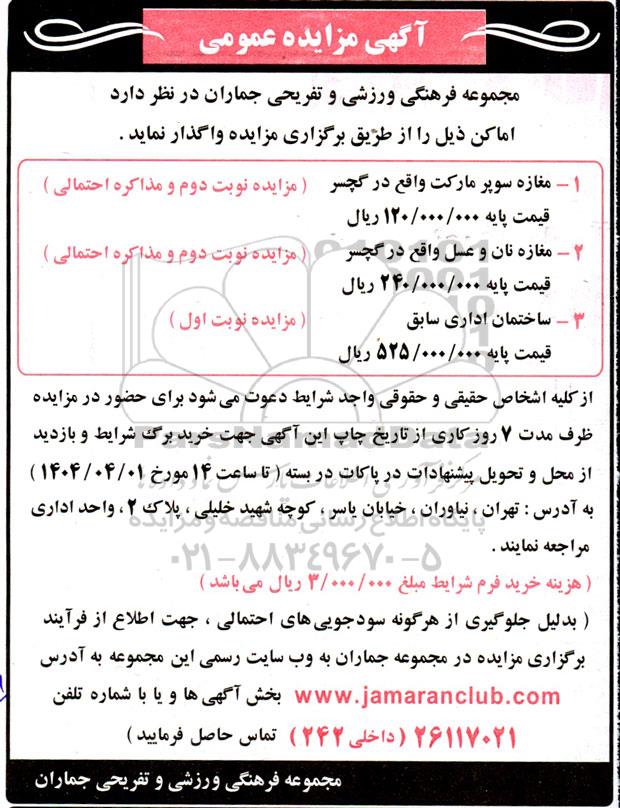 آگهی مزایده عمومی
مجموعه فرهنگی ورزشی و تفریحی جماران در نظر دارد
اماکن ذیل را از طریق برگزاری مزایده واگذار نماید .
۱ - مغازه سوپر مارکت واقع در گچسر ( مزایده نوبت دوم و مذاکره احتمالی )
قیمت پایه ۱۲۰/۰۰۰/۰۰۰ ریال
۲ - مغازه نان و عسل واقع در گچسر ( مزایده نوبت دوم و مذاکره احتمالی )
قیمت پایه ۲۴۰/۰۰۰/۰۰۰ ریال
۳ - ساختمان اداری سابق ( مزایده نوبت اول )
قیمت پایه ۵۲۵/۰۰۰/۰۰۰ ریال
از کلیه اشخاص حقیقی و حقوقی واجد شرایط دعوت می شود برای حضور در مزایده
ظرف مدت ۷ روز کاری از تاریخ چاپ این آگهی جهت خرید برگ شرایط و بازدید
از محل و تحویل پیشنهادات در پاکات در بسته ( تا ساعت ۱۴ مورخ ۱۴۰۴/۰۴/۰۱ )
به آدرس : تهران ، نیاوران ، خیابان یاسر ، کوچه شهید خلیلی ، پلاک ۲ ، واحد اداری
مراجعه نمایند .
( هزینه خرید فرم شرایط مبلغ ۳/۰۰۰/۰۰۰ ریال می باشد )
( بدلیل جلوگیری از هرگونه سودجویی های احتمالی ، جهت اطلاع از فرآیند
برگزاری مزایده در مجموعه جماران به وب سایت رسمی این مجموعه به آدرس
www.jamaranclub.com بخش آگهی ها و یا با شماره تلفن
۲۶۱۱۷۰۲۱ ( داخلی ۲۴۲ ) تماس حاصل فرمایید )
مجموعه فرهنگی ورزشی و تفریحی جماران
ParsNamadData
پایگاه اطلاع رسانی مناقصه و مزایده
۰۲۱-۸۸۳۴۹۶۷۰-۵